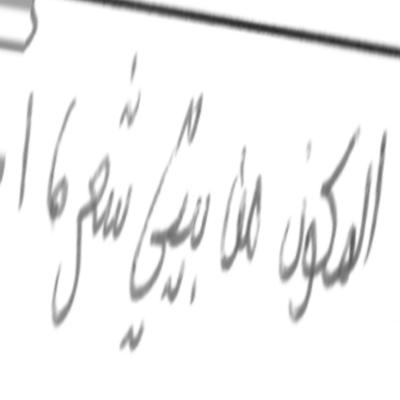 المكون من بيتي شعر ها